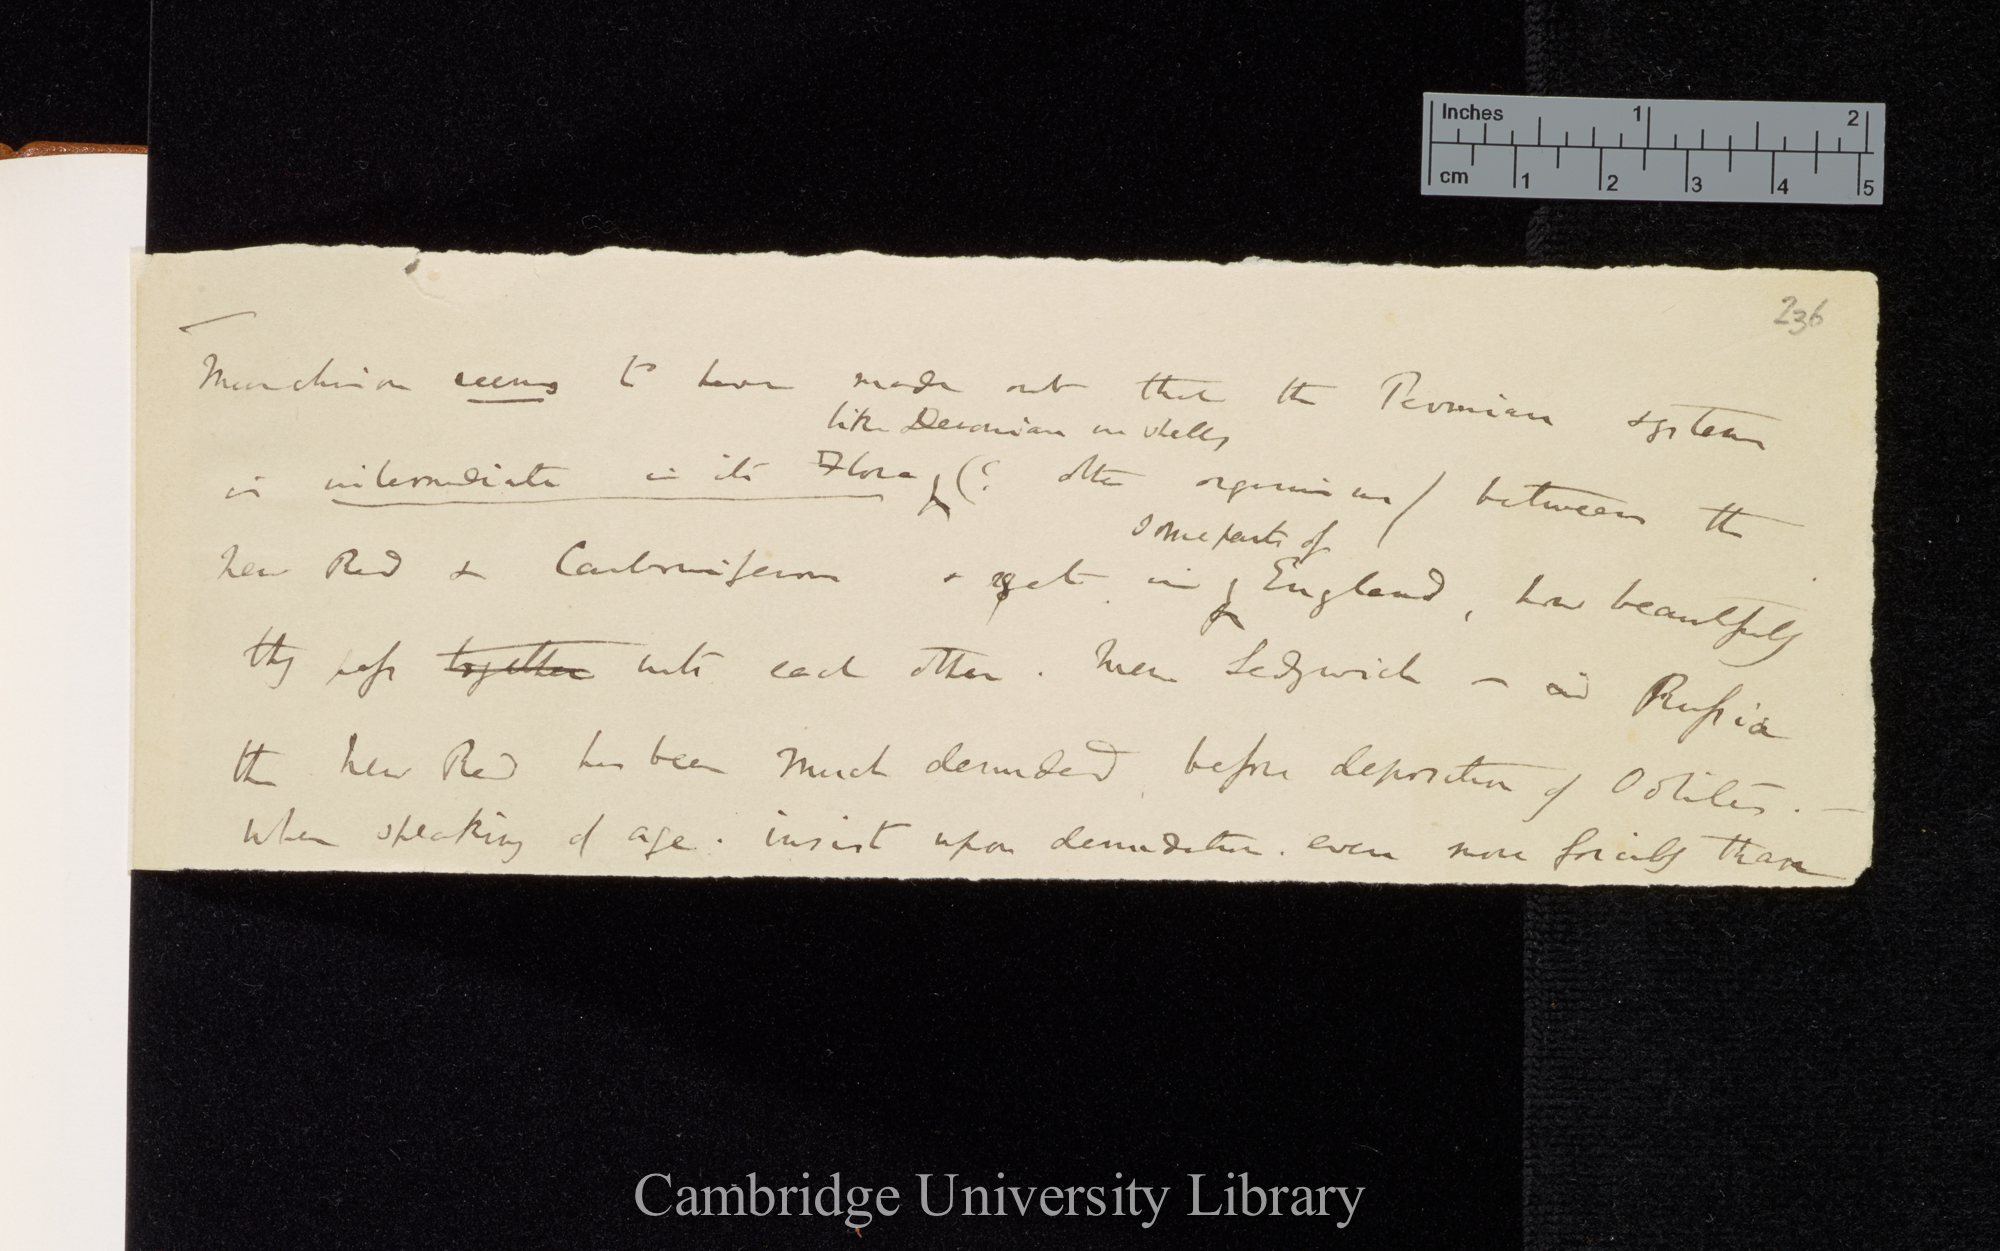 Inches 1 2
cm 1 2 3 4 5
236
Murchison seems to have made out that the Permian system
like Devonian in shells
is intermediate in its Flora (? other organisms) between the
some parts of
New Red & Carboniferous & yet in England, how beautifully
they pass together into each other. Sedgwick — in Russia
the New Red has been much denuded before deposition of Oolites. —
When speaking of age. insist upon denudation. even more forcibly than
Cambridge University Library